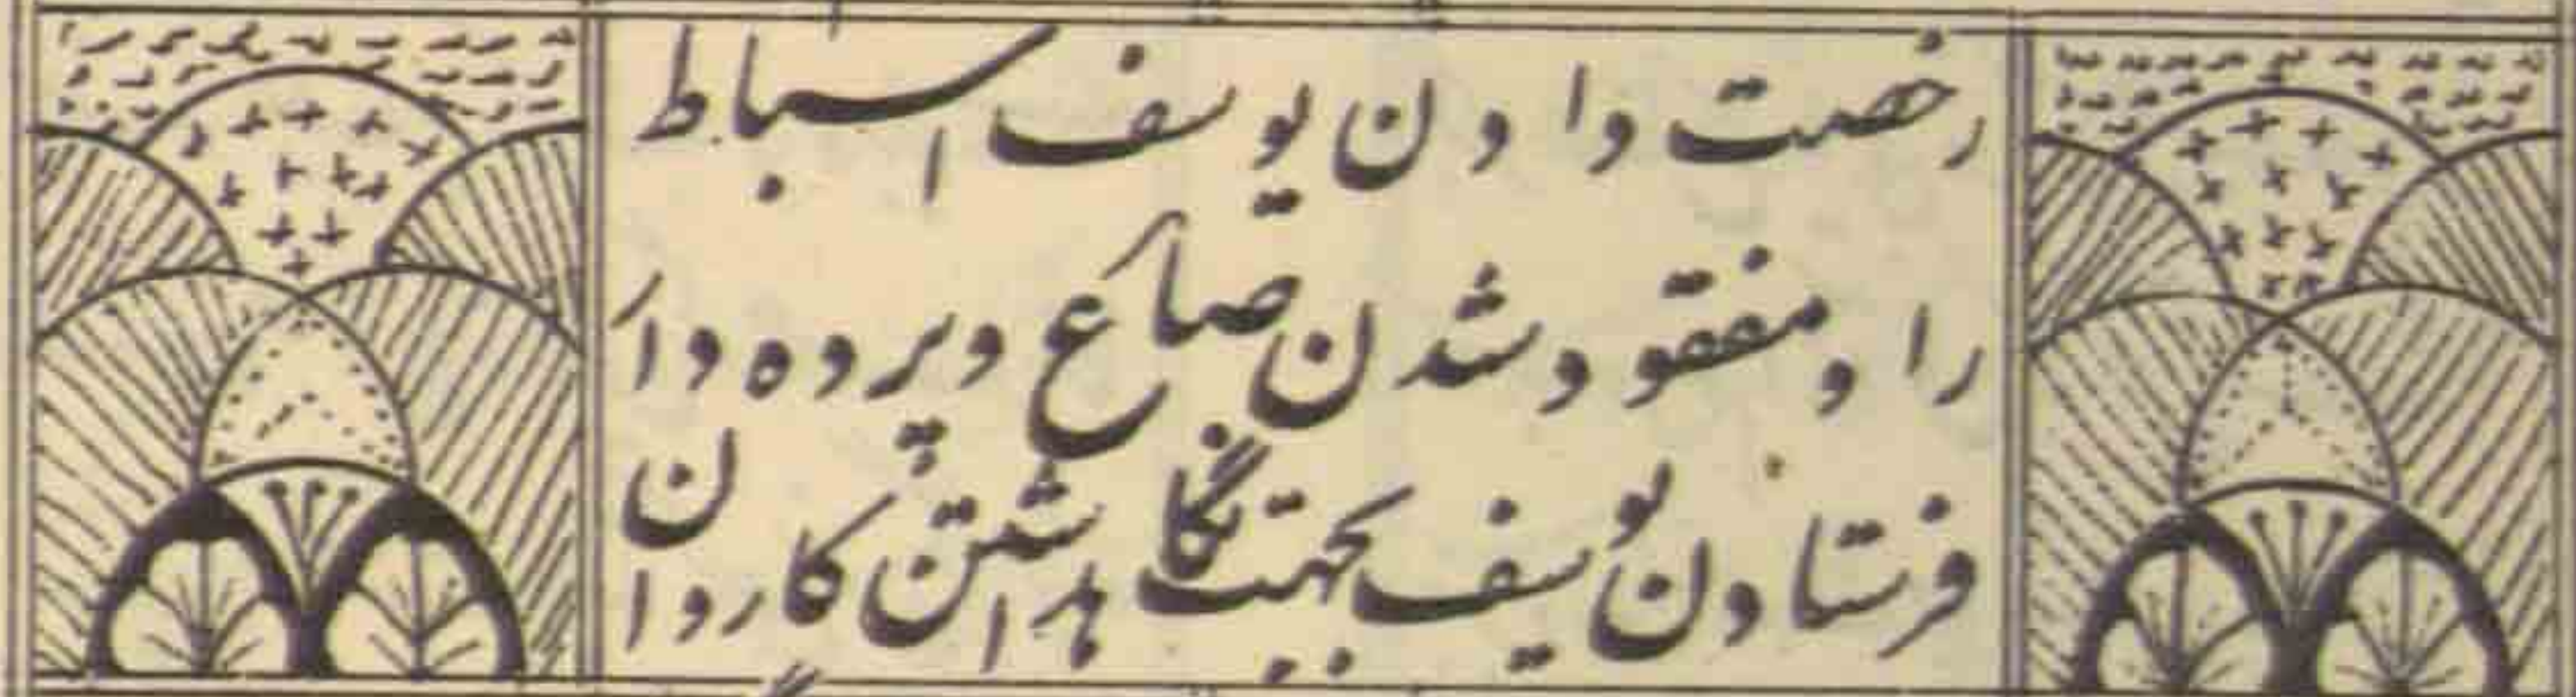 رخصت دادن یوسف اسباط
را و مفقود شدن صاع و پرده دار
فرستادن یوسف بجهت نگاهداشتن کاروان